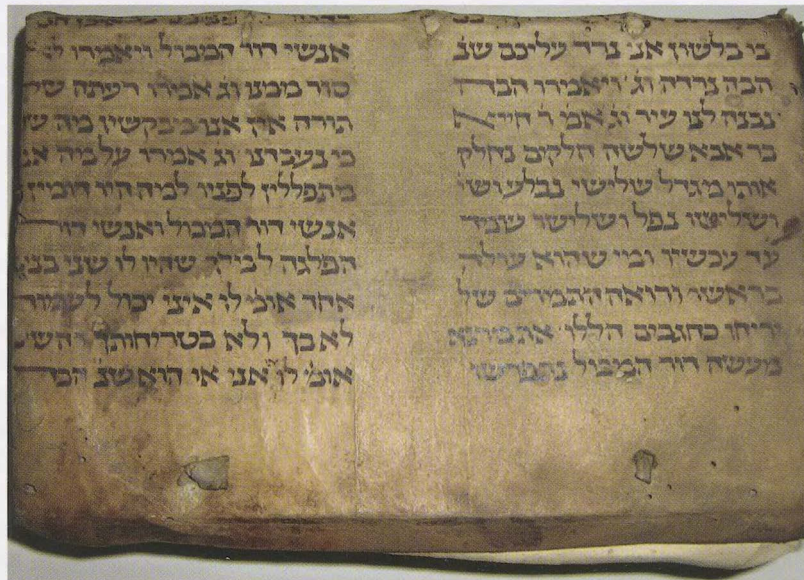 בו בלשון אני נרד עליכם שנ׳
הבה נרדה וג׳ ויאמרו הבה
נבנה לנו עיר וג׳ אמ׳ ר׳ חייא
בר אבא שלשה חלקים נחלק
אותו מגדל שלישי נבלע ושי
ושלישו נפל ושלישו עומד
עד עכשיו ומי שהוא עולה
בראשו ורואה התמרים של
יריחו כחגבים הללו את מוצא
מעשה דור המבול נתפרשו
אנשי דור המבול ויאמרו
סור ממנו וג׳ אמרו
תורה אין אנו מבקשין מה
כי נעבדנו וג׳ אמרו על מה
מתפללין לפניו למה היו דומין
אנשי דור המבול ואנשי דור
הפלגה למלך שהיו לו שני
אחד אומ׳ לו איני יכול לעמוד
לא בך ולא בטריחותך
אומ׳ לו אני או הוא שנ׳